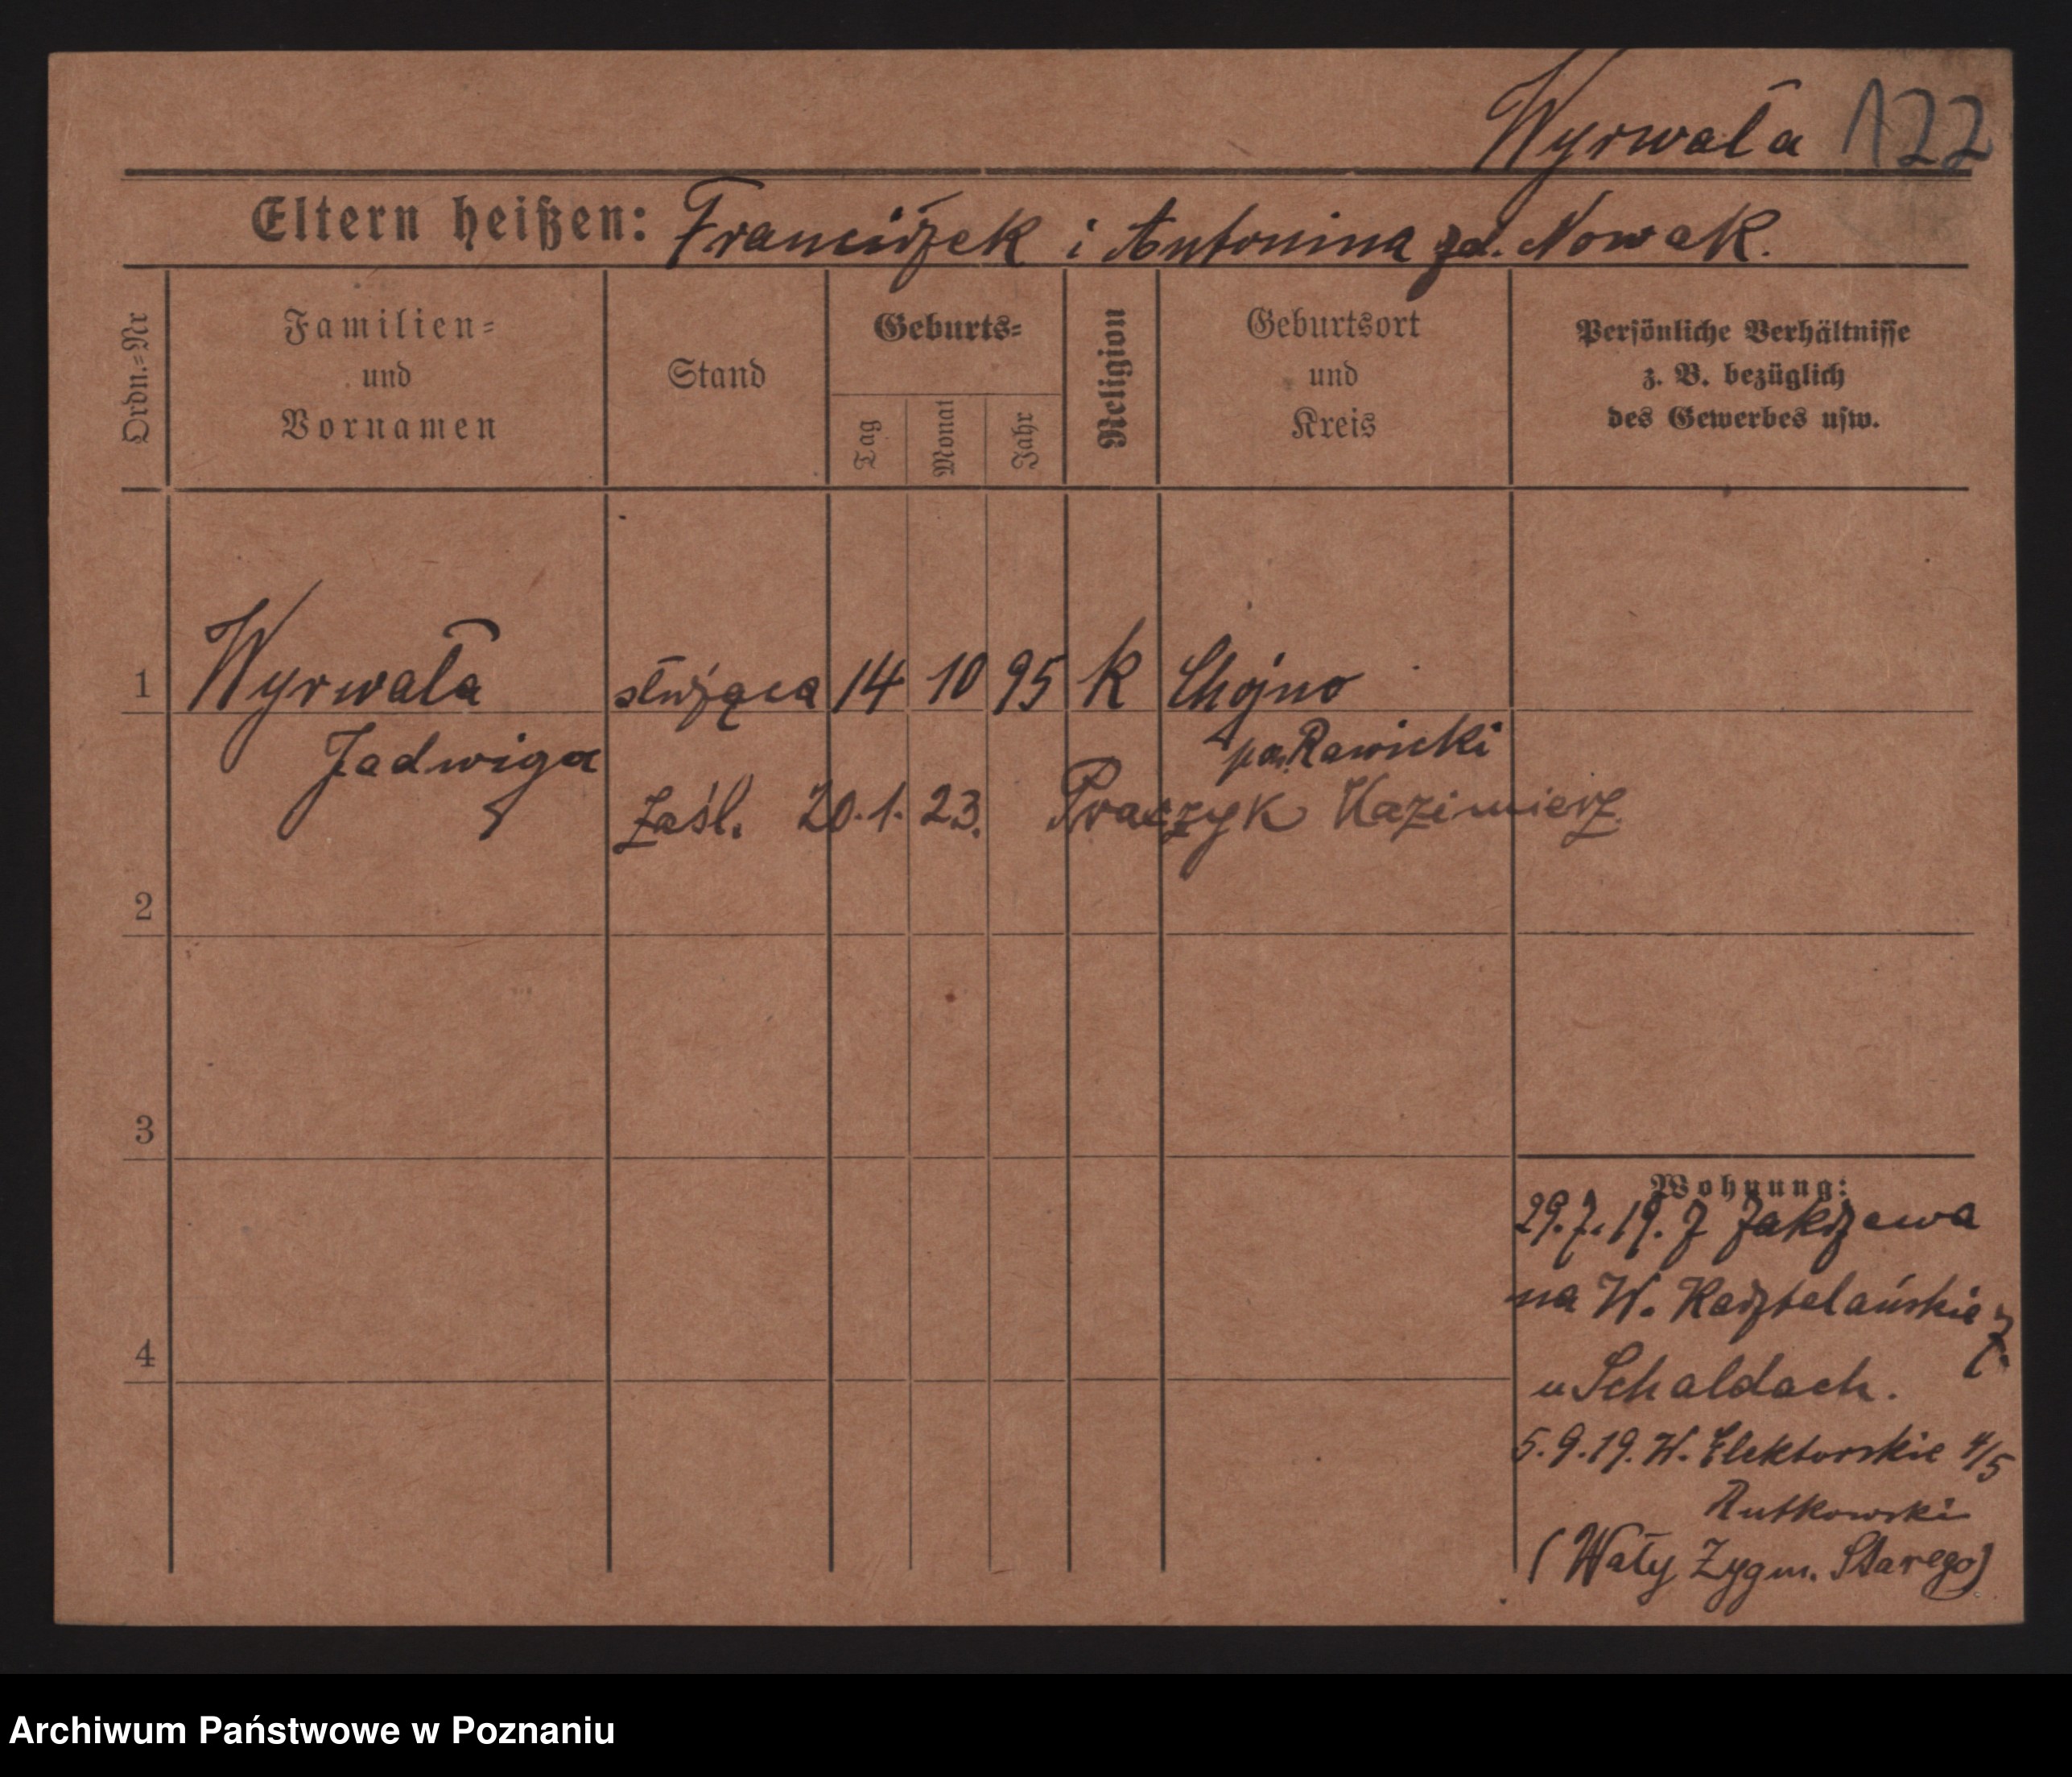 Wyrwała 122
Eltern heißen: Franciszek i Antonina zd. Nowak.
Ordn.=Nr
Familien=
und
Vornamen
Stand
Geburts=
Tag
Monat
Jahr
Religion
Geburtsort
und
Kreis
Persönliche Verhältnisse
z. B. bezüglich
des Gewerbes usw.
1 Wyrwała służąca 14 10 95 K Chojno
Jadwiga pow. Rawicki
zaśl. 20.1.23. Praczyk Kazimierz
2
3
4
Wohnung:
29.7.19. Z Zakrzewa
na W. Kasztelańskie
u Schaldach.
5.9.19. W. Elektorskie 4/5
Rutkowski
(Wały Zygm. Starego)
Archiwum Państwowe w Poznaniu